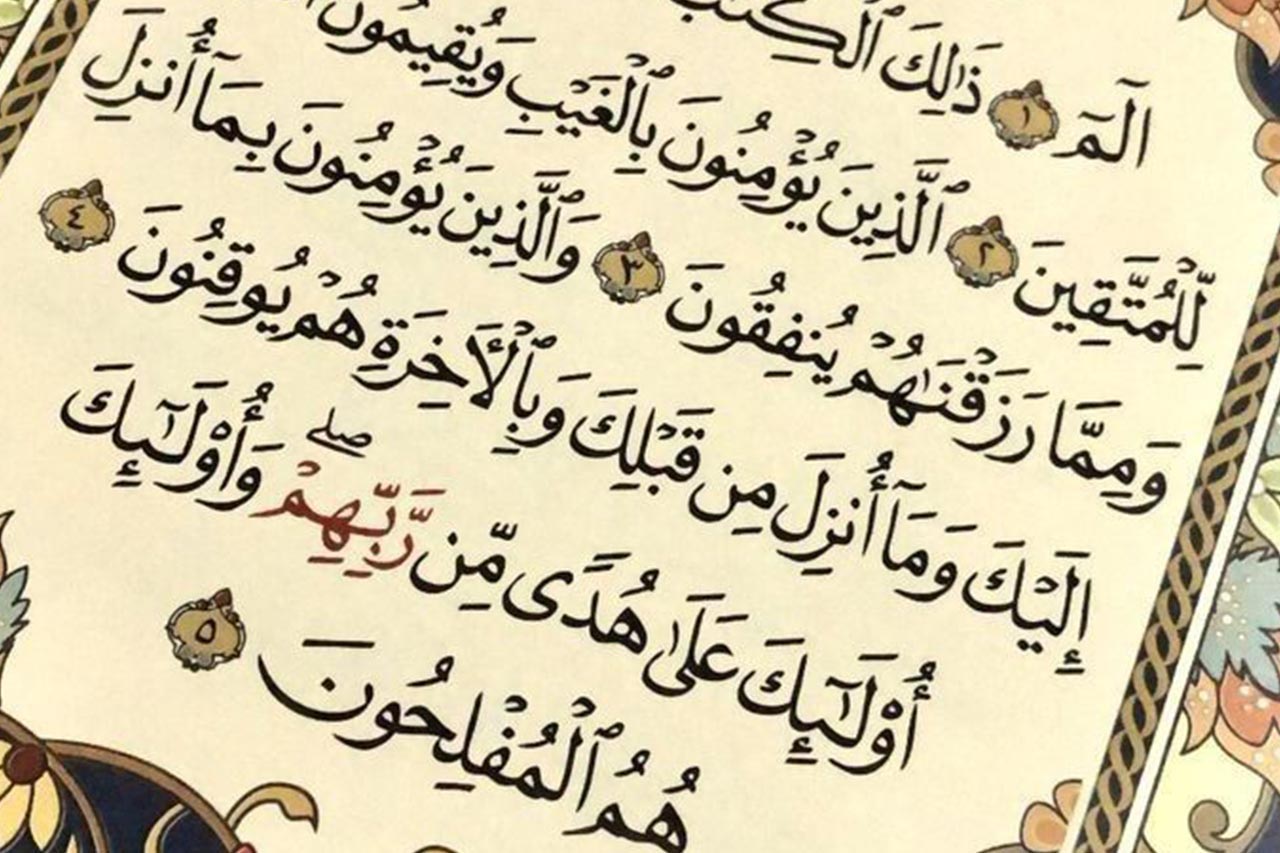 الٓمٓ ١ ذَٰلِكَ ٱلْكِتَٰبُ
لِّلْمُتَّقِينَ ٢ ٱلَّذِينَ يُؤْمِنُونَ بِٱلْغَيْبِ وَيُقِيمُونَ
وَمِمَّا رَزَقْنَٰهُمْ يُنفِقُونَ ٣ وَٱلَّذِينَ يُؤْمِنُونَ بِمَآ أُنزِلَ
إِلَيْكَ وَمَآ أُنزِلَ مِن قَبْلِكَ وَبِٱلْأَخِرَةِ هُمْ يُوقِنُونَ ٤
أُو۟لَٰٓئِكَ عَلَىٰ هُدًى مِّن رَّبِّهِمْ ۖ وَأُو۟لَٰٓئِكَ
هُمُ ٱلْمُفْلِحُونَ ٥